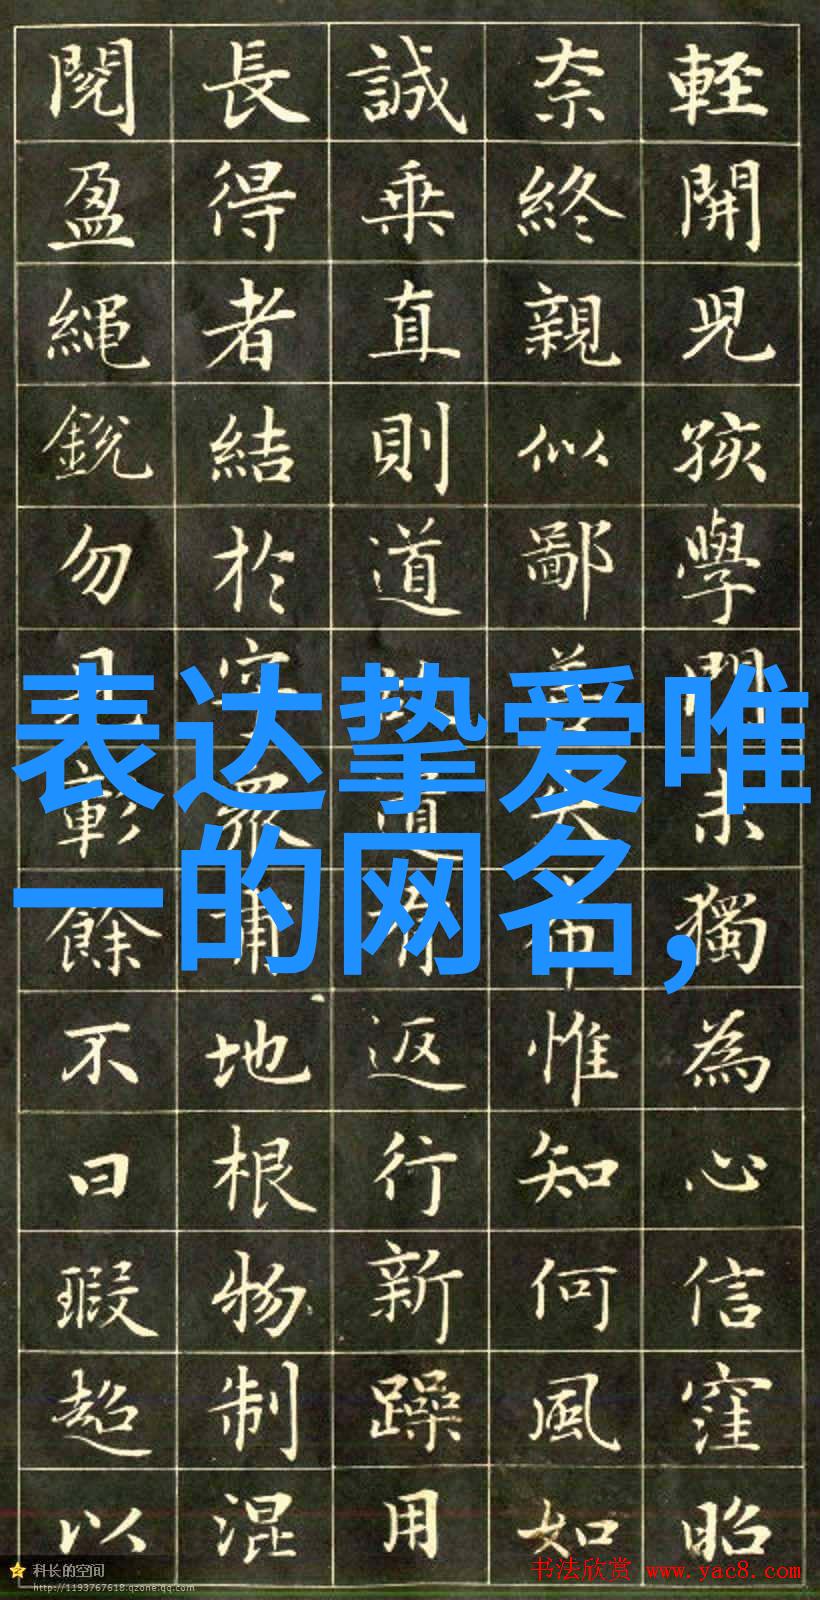 閱長誠奈輕
盈得乘終開
繩者直親兒
銳結則似孩
勿於道鄙學
表达挚爱唯
彰眾道失未
一的网名,
餘甫有布獨
不地返惟為
曰根行知心
瑕物新何信
超制躁風窪
以混用如昭
科长的空间
http://1193767618.qzone.qq.com
书法欣赏 www.yac8.com